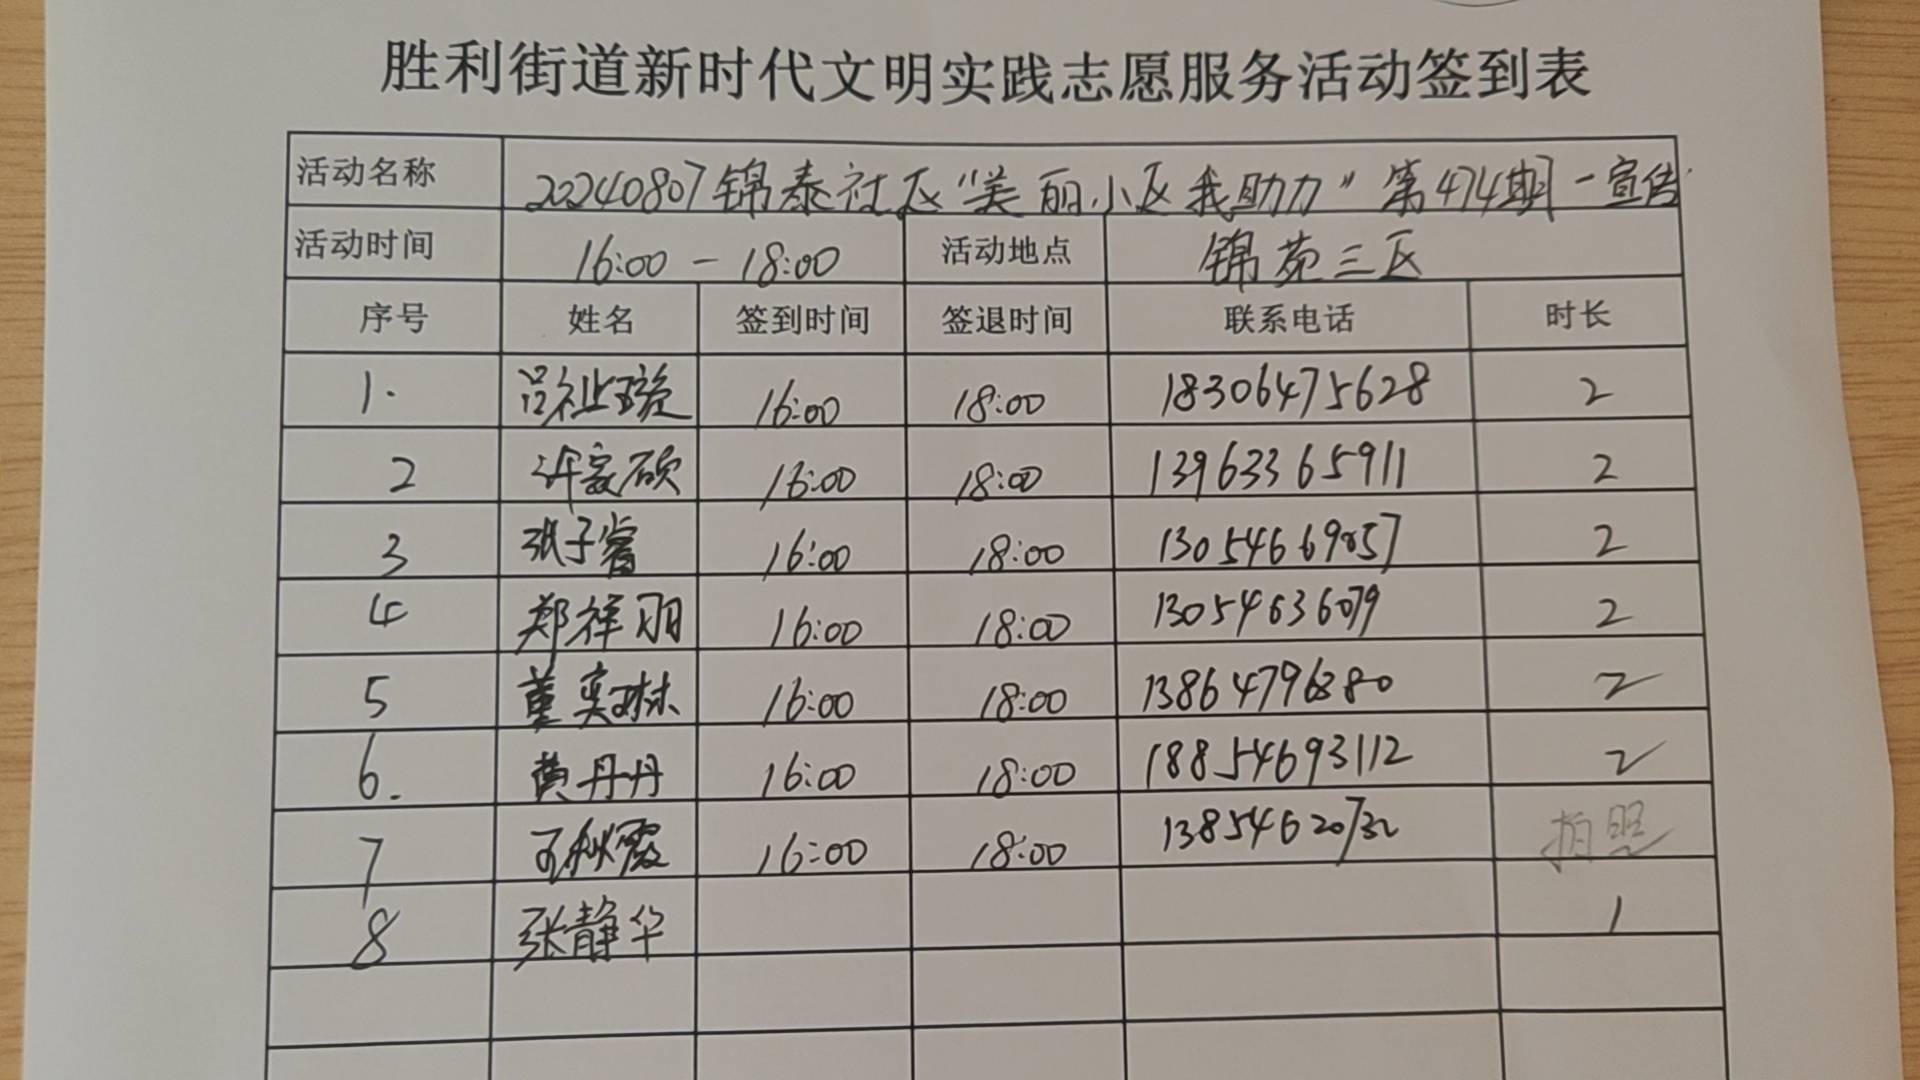 胜利街道新时代文明实践志愿服务活动签到表
活动名称 20240807锦泰社区“美丽小区我助力”第474期-宣传
活动时间 16:00-18:00 活动地点 锦苑三区
序号 姓名 签到时间 签退时间 联系电话 时长
1. 吕祉璇 16:00 18:00 18306475628 2
2 许家硕 16:00 18:00 13963365911 2
3 张子睿 16:00 18:00 13054669057 2
4 郑祥羽 16:00 18:00 13054636079 2
5 董奕琳 16:00 18:00 2
6. 黄丹丹 16:00 18:00 18854693112 2
7 秋霞 16:00 18:00 拍照
8 张静华 1